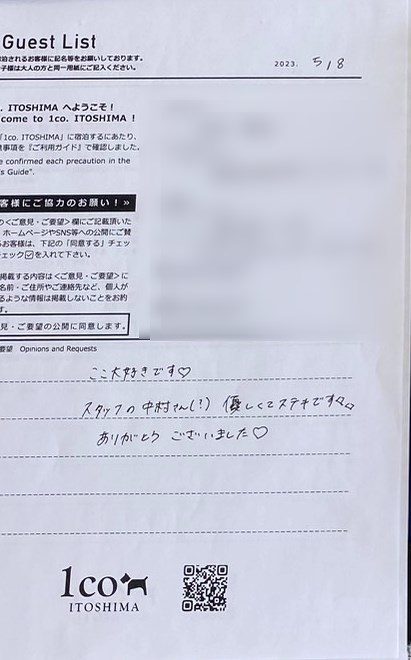 Guest List
泊されるお客様に記名等をお願いしております。
子様は大人の方と同一用紙にご記入ください。
2023. 5/8
. ITOSHIMA へようこそ！
come to 1co. ITOSHIMA !
「1co. ITOSHIMA」に宿泊するにあたり、
意事項を『ご利用ガイド』で確認しました。
e confirmed each precaution in the
s Guide".
客様にご協力のお願い！»
の<ご意見・ご要望>欄にご記載頂いた
ホームページやSNS等への公開にご賛
るお客様は、下記の「同意する」チェッ
チェック☑を入れて下さい。
掲載する内容は<ご意見・ご要望>に
名前・ご住所やご連絡先など、個人が
るような情報は掲載しないことをお約
す。
見・ご要望の公開に同意します。
要望 Opinions and Requests
ここ大好きです♡
スタッフの中村さん(!) 優しくてステキです
ありがとうございました♡
1co
ITOSHIMA